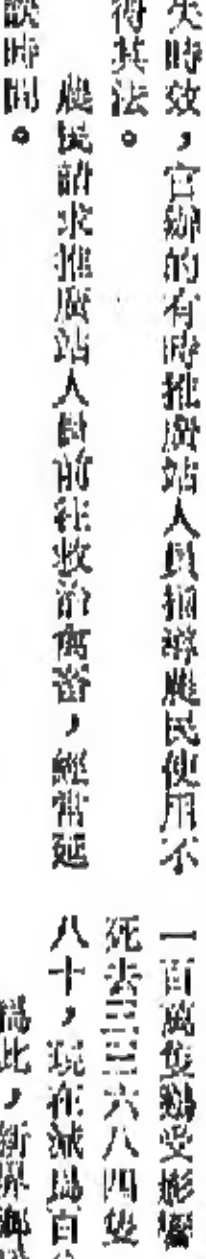 失時效，官辦的有時推廣站人員指導農民使用不
得其法。
農民請求推廣站人員前往救治禽畜，經常延
誤時間。
一百萬隻鷄受影響
死去三三六八四隻
八十，現在減爲百
爲此，新界鄉